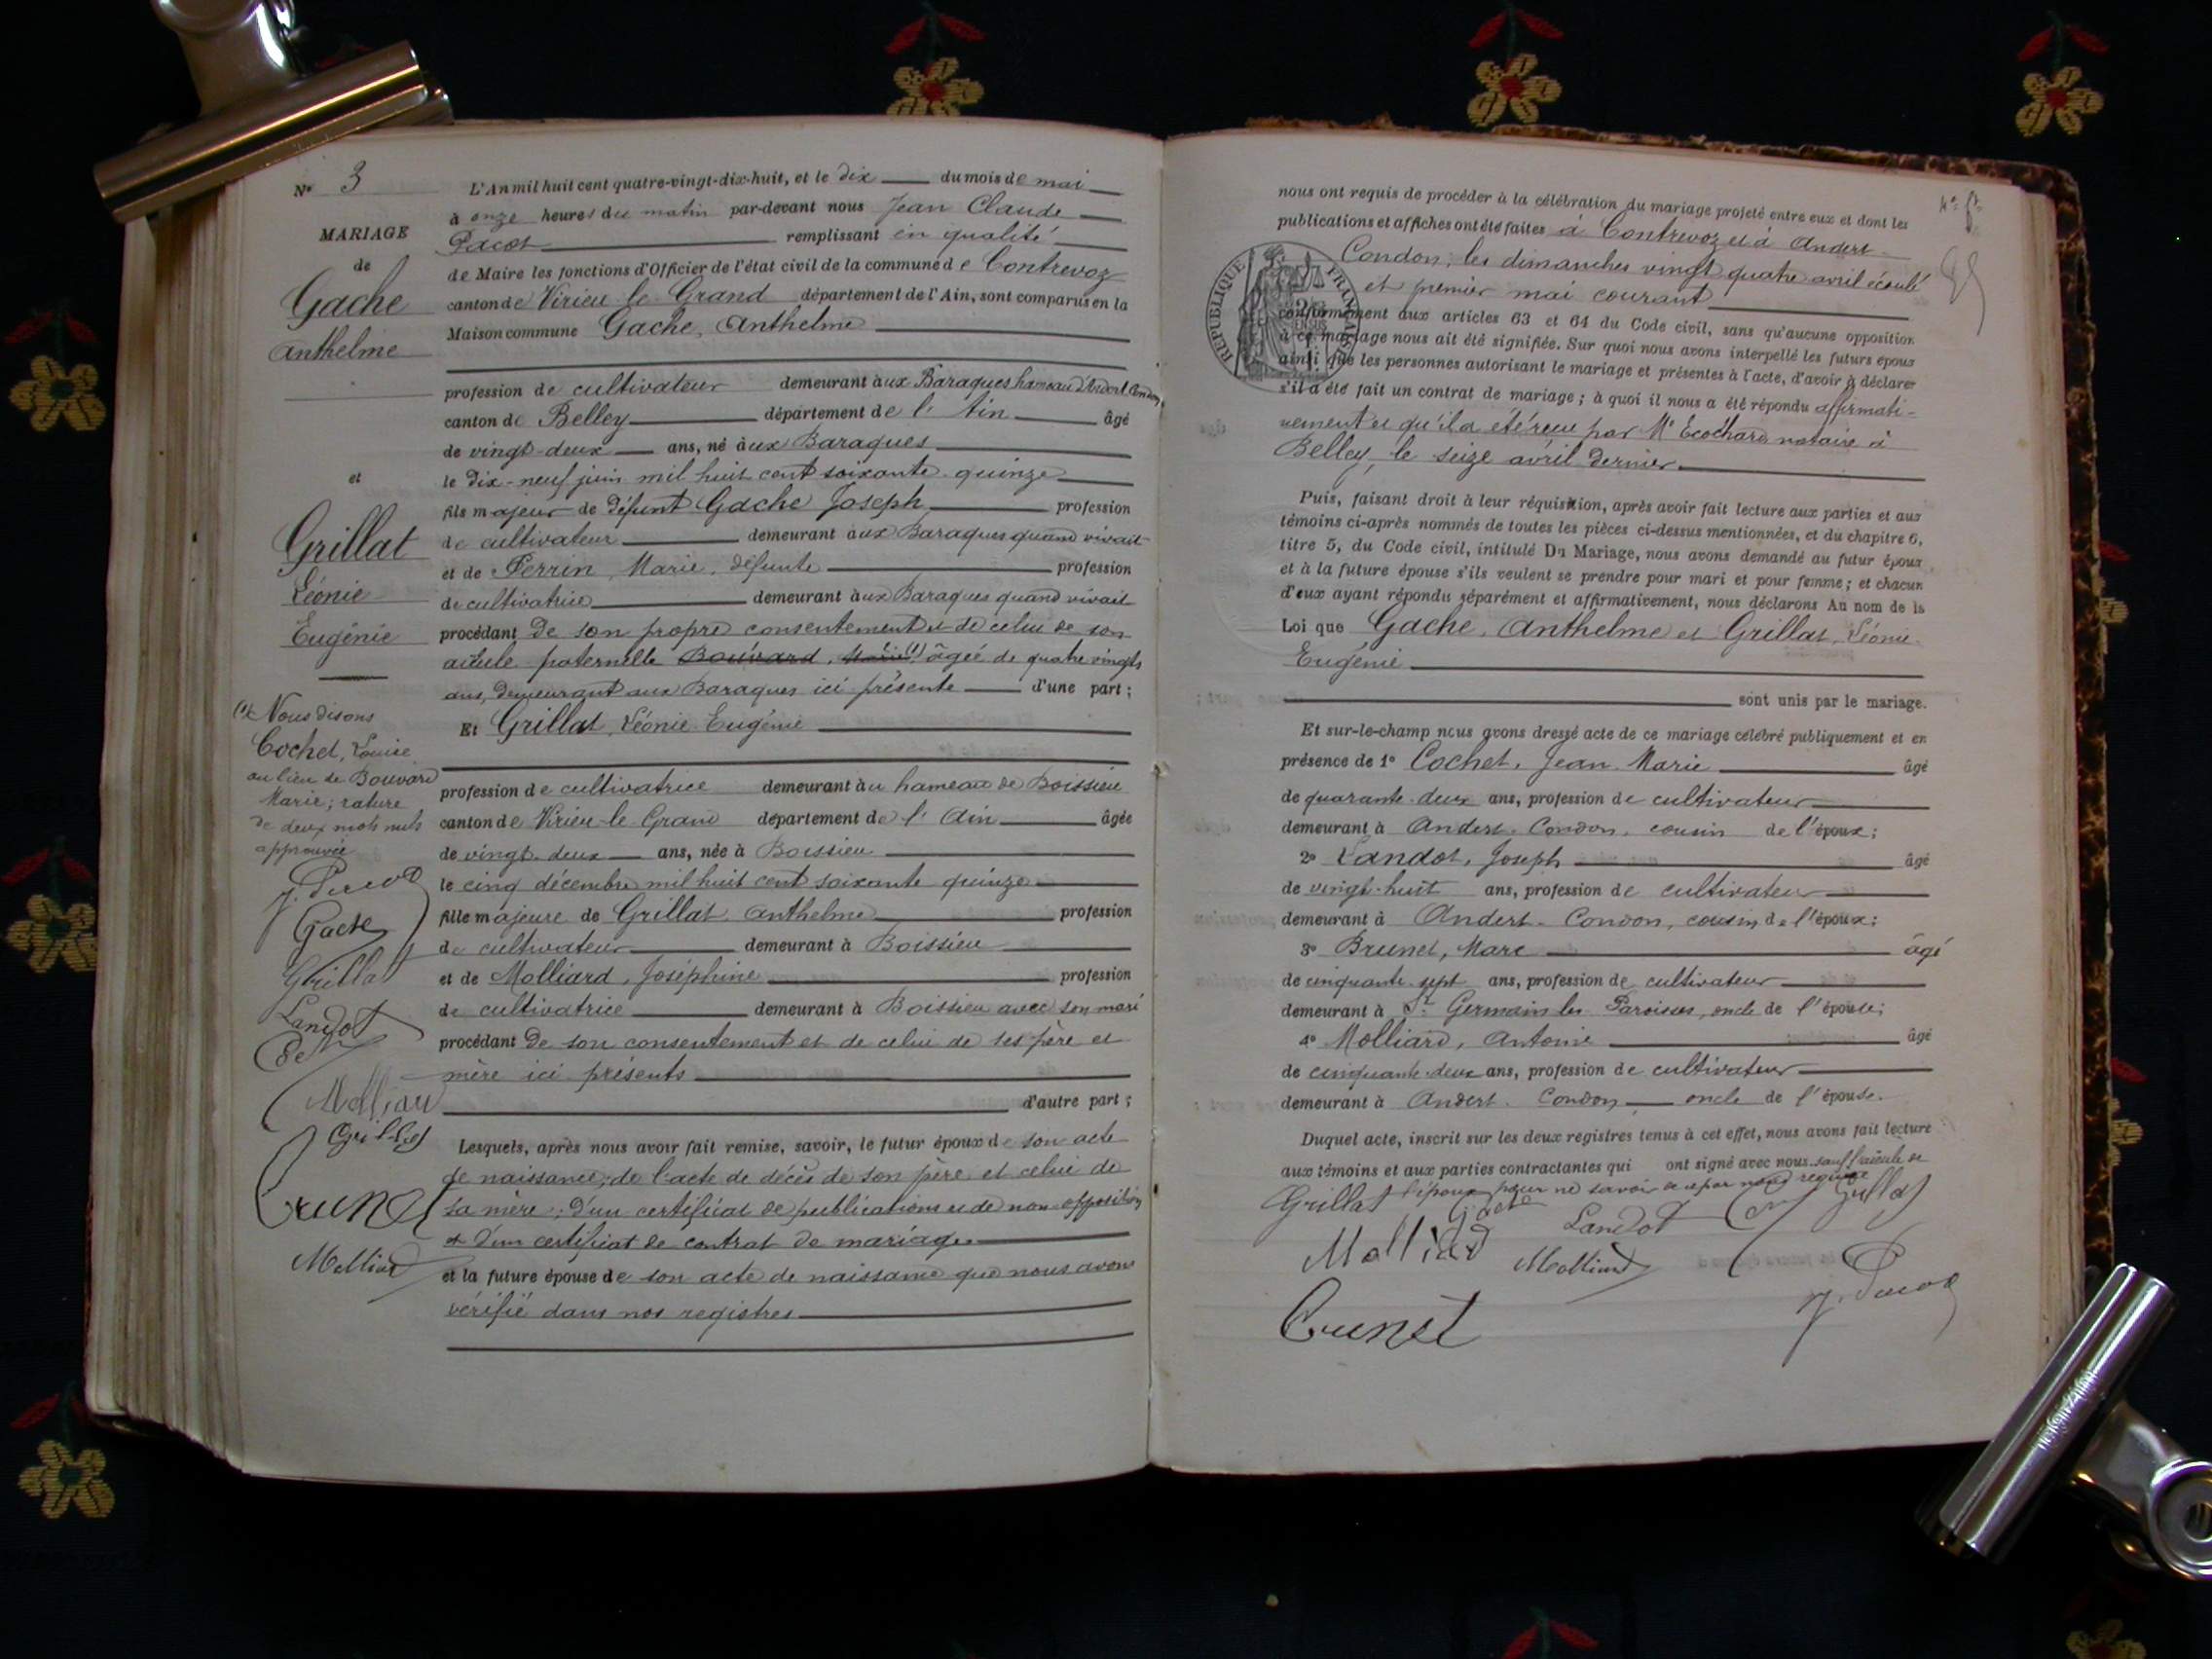 N° 3
MARIAGE
de
Gache
Anthelme
et
Grillat
Léonie
Eugénie
(1) Nous disons
Cochet, Louise
au lieu de Bouvard
Marie; rature
de deux mots nuls
approuvée
Gache
Grillat
Landot
Molliard
Grillat
Brunet
Molliard
L'An mil huit cent quatre-vingt-dix-huit, et le dix du mois de mai
à onze heures du matin par-devant nous Jean Claude
Pacot remplissant en qualité
de Maire les fonctions d'Officier de l'état civil de la commune de Contrevoz
canton de Virieu-le-Grand département de l'Ain, sont comparus en la
Maison commune Gache, Anthelme
profession de cultivateur demeurant aux Baraques hameau d'Andert-Condon,
canton de Belley département de l'Ain âgé
de vingt-deux ans, né aux Baraques
le dix-neuf juin mil huit cent soixante-quinze
fils majeur de défunt Gache Joseph profession
de cultivateur demeurant aux Baraques quand vivait
et de Perrin, Marie, défunte profession
de cultivatrice demeurant aux Baraques quand vivait
procédant de son propre consentement et de celui de son
aïeule paternelle Bouvard, Marie (1) âgée de quatre vingts
ans, demeurant aux Baraques ici présente d'une part;
Et Grillat, Léonie Eugénie
profession de cultivatrice demeurant au hameau de Boissieu
canton de Virieu-le-Grand département de l'Ain âgée
de vingt-deux ans, née à Boissieu
le cinq décembre mil huit cent soixante quinze
fille majeure de Grillat Anthelme profession
de cultivateur demeurant à Boissieu
et de Molliard, Joséphine profession
de cultivatrice demeurant à Boissieu avec son mari
procédant de son consentement et de celui de ses père et
mère ici présents
d'autre part;
Lesquels, après nous avoir fait remise, savoir, le futur époux de son acte
de naissance; de l'acte de décès de son père et celui de
sa mère; d'un certificat de publications et de non-opposition
et d'un certificat de contrat de mariage
et la future épouse de son acte de naissance que nous avons
vérifié dans nos registres
nous ont requis de procéder à la célébration du mariage projeté entre eux et dont les
publications et affiches ont été faites à Contrevoz et à Andert-
Condon, les dimanches vingt quatre avril écoulé
et premier mai courant
RÉPUBLIQUE FRANÇAISE
conformément aux articles 63 et 64 du Code civil, sans qu'aucune opposition
à ce mariage nous ait été signifiée. Sur quoi nous avons interpellé les futurs époux
ainsi que les personnes autorisant le mariage et présentes à l'acte, d'avoir à déclarer
s'il a été fait un contrat de mariage; à quoi il nous a été répondu affirmati-
vement et qu'il a été reçu par Me Ecochard notaire à
Belley, le seize avril dernier.
Puis, faisant droit à leur réquisition, après avoir fait lecture aux parties et aux
témoins ci-après nommés de toutes les pièces ci-dessus mentionnées, et du chapitre 6,
titre 5, du Code civil, intitulé Du Mariage, nous avons demandé au futur époux
et à la future épouse s'ils veulent se prendre pour mari et pour femme; et chacun
d'eux ayant répondu séparément et affirmativement, nous déclarons Au nom de la
Loi que Gache, Anthelme et Grillat, Léonie
Eugénie
sont unis par le mariage.
Et sur-le-champ nous avons dressé acte de ce mariage célébré publiquement et en
présence de 1° Cochet, Jean Marie âgé
de quarante-deux ans, profession de cultivateur
demeurant à Andert-Condon, cousin de l'époux;
2° Landot, Joseph âgé
de vingt-huit ans, profession de cultivateur
demeurant à Andert-Condon, cousin de l'époux;
3° Brunet, Marc âgé
de cinquante-sept ans, profession de cultivateur
demeurant à St Germain les Paroisses, oncle de l'épouse;
4° Molliard, Antoine âgé
de cinquante-deux ans, profession de cultivateur
demeurant à Andert-Condon oncle de l'épouse.
Duquel acte, inscrit sur les deux registres tenus à cet effet, nous avons fait lecture
aux témoins et aux parties contractantes qui ont signé avec nous sauf l'aïeule de
l'époux pour ne savoir de ce par nous requise
Grillat Gache Landot Grillat
Molliard Molliard
Brunet J. Pacot